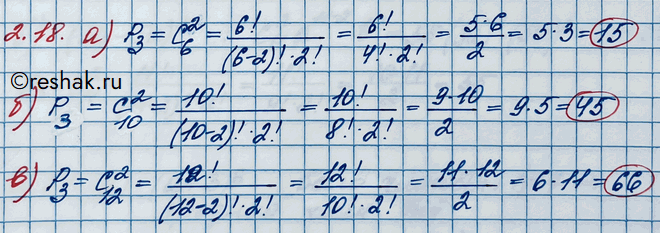 2.18. а) P₃ = C₆² = 6! / (6-2)!·2! = 6! / 4!·2! = 5·6 / 2 = 5·3 = 15
©reshak.ru
б) P₃ = C₁₀² = 10! / (10-2)!·2! = 10! / 8!·2! = 9·10 / 2 = 9·5 = 45
в) P₃ = C₁₂² = 12! / (12-2)!·2! = 12! / 10!·2! = 11·12 / 2 = 6·11 = 66